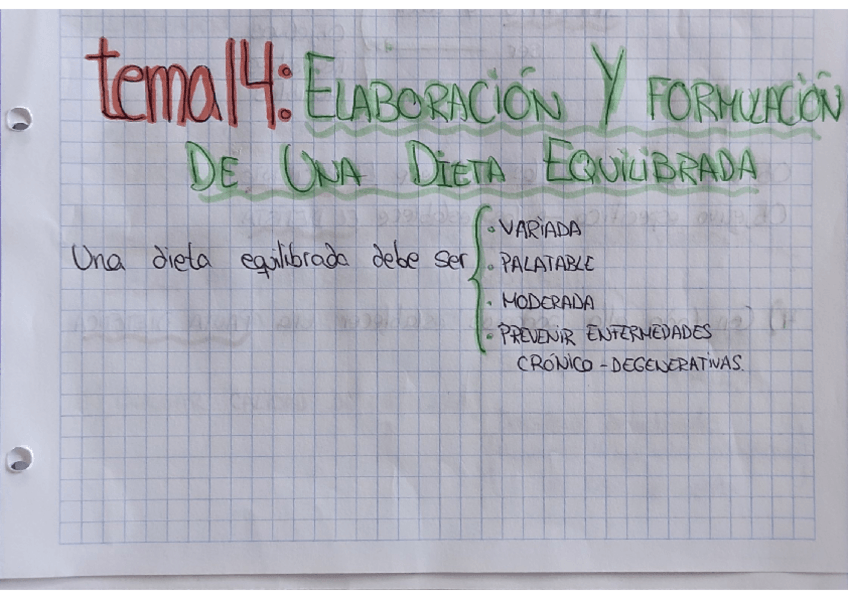 tema 14: ELABORACIÓN Y FORMULACIÓN
DE UNA DIETA EQUILIBRADA
Una dieta equilibrada debe ser
· VARIADA
· PALATABLE
· MODERADA
· PREVENIR ENFERMEDADES
CRÓNICO - DEGENERATIVAS.